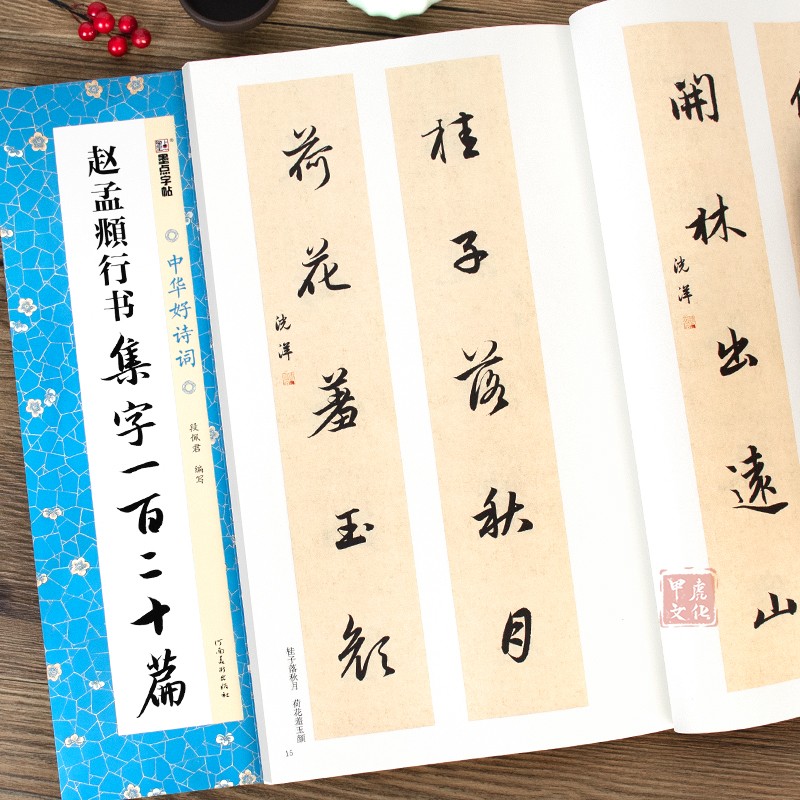 墨点字帖
赵孟頫行书
集字一百二十篇
中华好诗词
段佩君 编写
河南美术出版社
桂子落秋月
荷花羞玉颜
洗洋
桂子落秋月 荷花羞玉颜
15
開林出遠山
洗洋
甲虎文化